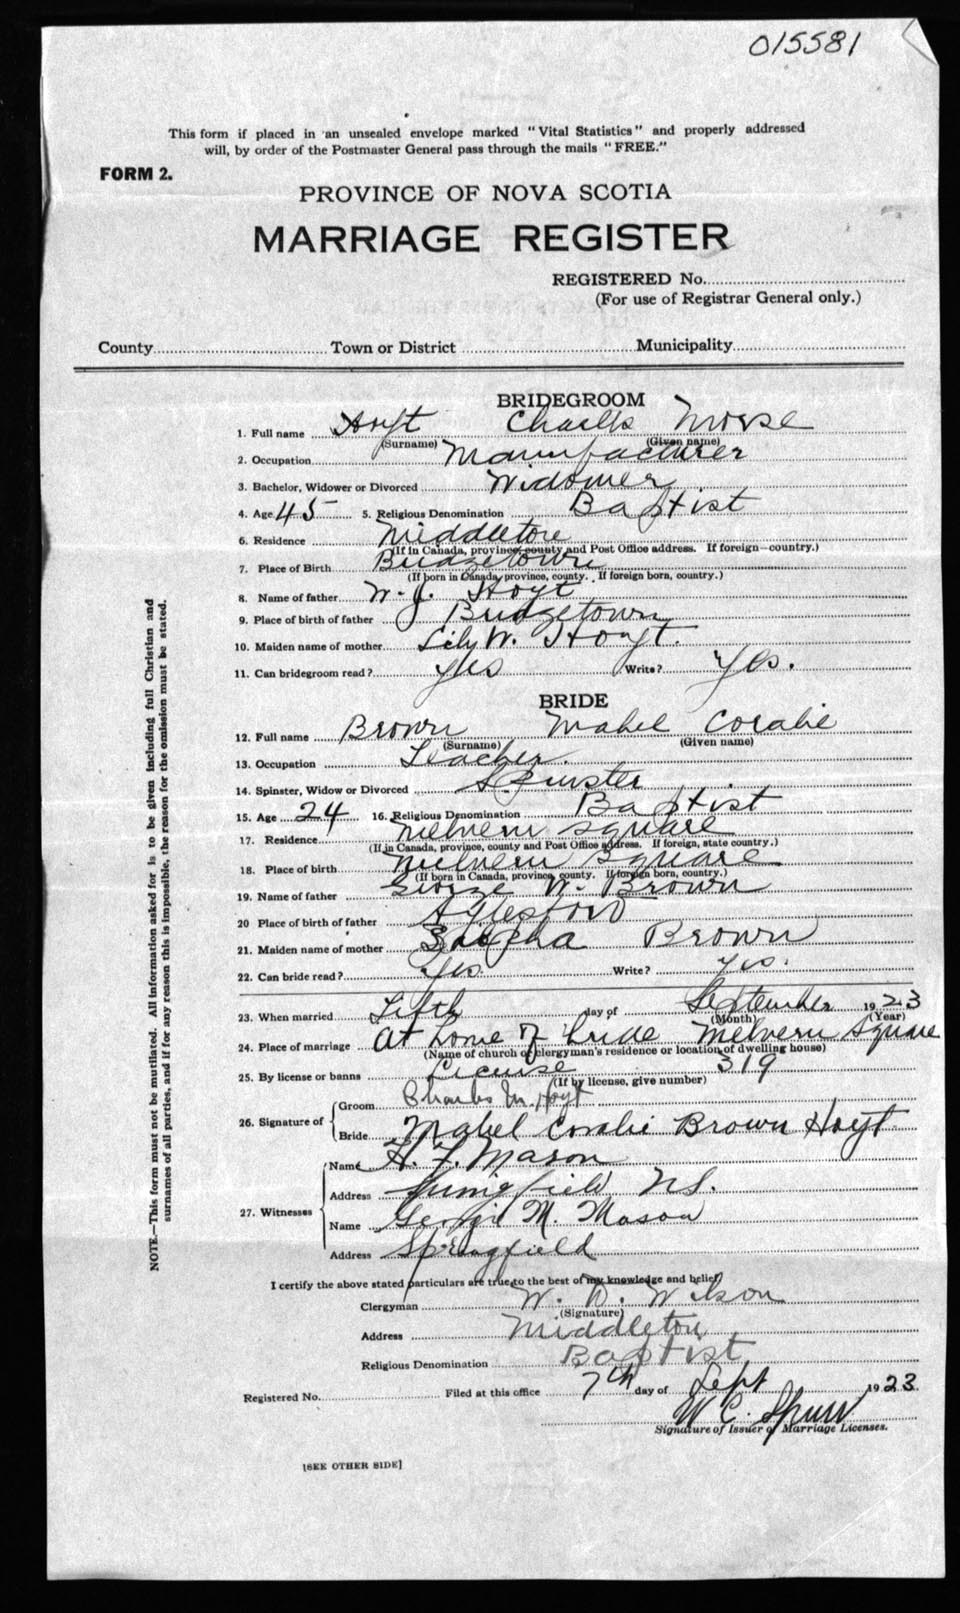 015581
This form if placed in an unsealed envelope marked "Vital Statistics" and properly addressed
will, by order of the Postmaster General pass through the mails "FREE."
FORM 2.
PROVINCE OF NOVA SCOTIA
MARRIAGE REGISTER
REGISTERED No.
(For use of Registrar General only.)
County Town or District Municipality
BRIDEGROOM
1. Full name Hoyt Charles Morse
(Surname) (Given name)
2. Occupation Manufacturer
3. Bachelor, Widower or Divorced Widower
4. Age 45 5. Religious Denomination Baptist
6. Residence Middleton
(If in Canada, province, county and Post Office address. If foreign—country.)
7. Place of Birth Bridgetown
(If born in Canada, province, county. If foreign born, country.)
8. Name of father W. J. Hoyt
9. Place of birth of father Bridgetown
10. Maiden name of mother Lily W. Hoyt.
11. Can bridegroom read? yes Write? yes.
BRIDE
12. Full name Brown Mabel Coralie
(Surname) (Given name)
13. Occupation Teacher.
14. Spinster, Widow or Divorced Spinster
15. Age 24 16. Religious Denomination Baptist
17. Residence Melvern Square
(If in Canada, province, county and Post Office address. If foreign, state country.)
18. Place of birth Melvern Square
(If born in Canada, province, county. If foreign born, country.)
19. Name of father George W. Brown
20 Place of birth of father Aylesford
21. Maiden name of mother Brown
22. Can bride read? Yes. Write? yes.
23. When married Fifth day of September 1923
(Month) (Year)
24. Place of marriage At home of bride Melvern Square
(Name of church or clergyman's residence or location of dwelling house)
25. By license or banns License 319
(If by license, give number)
26. Signature of Groom Charles M. Hoyt
Bride Mabel Coralie Brown Hoyt
27. Witnesses Name H. F. Mason
Address Springfield N.S.
Name M. Mason
Address Springfield
I certify the above stated particulars are true to the best of my knowledge and belief
Clergyman W. D. Wilson
(Signature)
Address Middleton
Religious Denomination Baptist
Registered No. Filed at this office 7th day of Sept 1923.
W C. Spurr
Signature of Issuer of Marriage Licenses.
[SEE OTHER SIDE]
NOTE.—This form must not be mutilated. All information asked for is to be given including full Christian and
surnames of all parties, and if for any reason this is impossible, the reason for the omission must be stated.